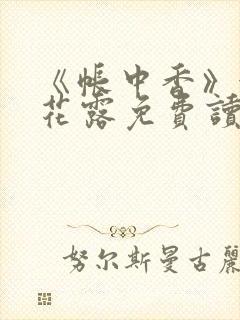 《帳中香》
花露免費讀
努尔斯曼古麗